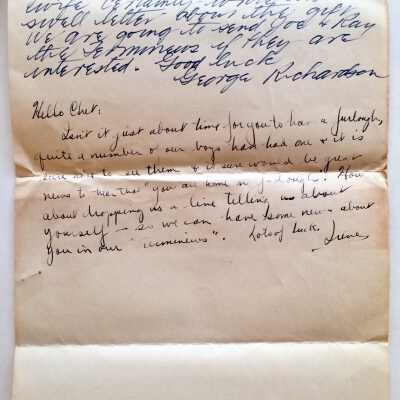 wife certainly
swell letter about the gift
we are going to send Joe & Kay
the Termineus if they are
interested. Good luck
George Richardson
Hello Chet,
Isn't it just about time for you to have a furlough,
quite a number of our boys have had one & it is
sure nice to see them & it sure would be great
news to hear that "you are home on furlough". How
about dropping us a line telling us about
yourself - so we can have some news about
you in our "
Lots of luck.
Irene